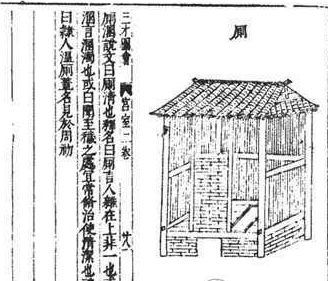 厠
三才圖會 宮室二卷 廿八
厠溷說文曰厠清也釋名曰厠言人雜在上非一也
溷言溷濁也或曰圊至穢之處宜常脩治使潔也
曰隸人厠蓋名見於周初